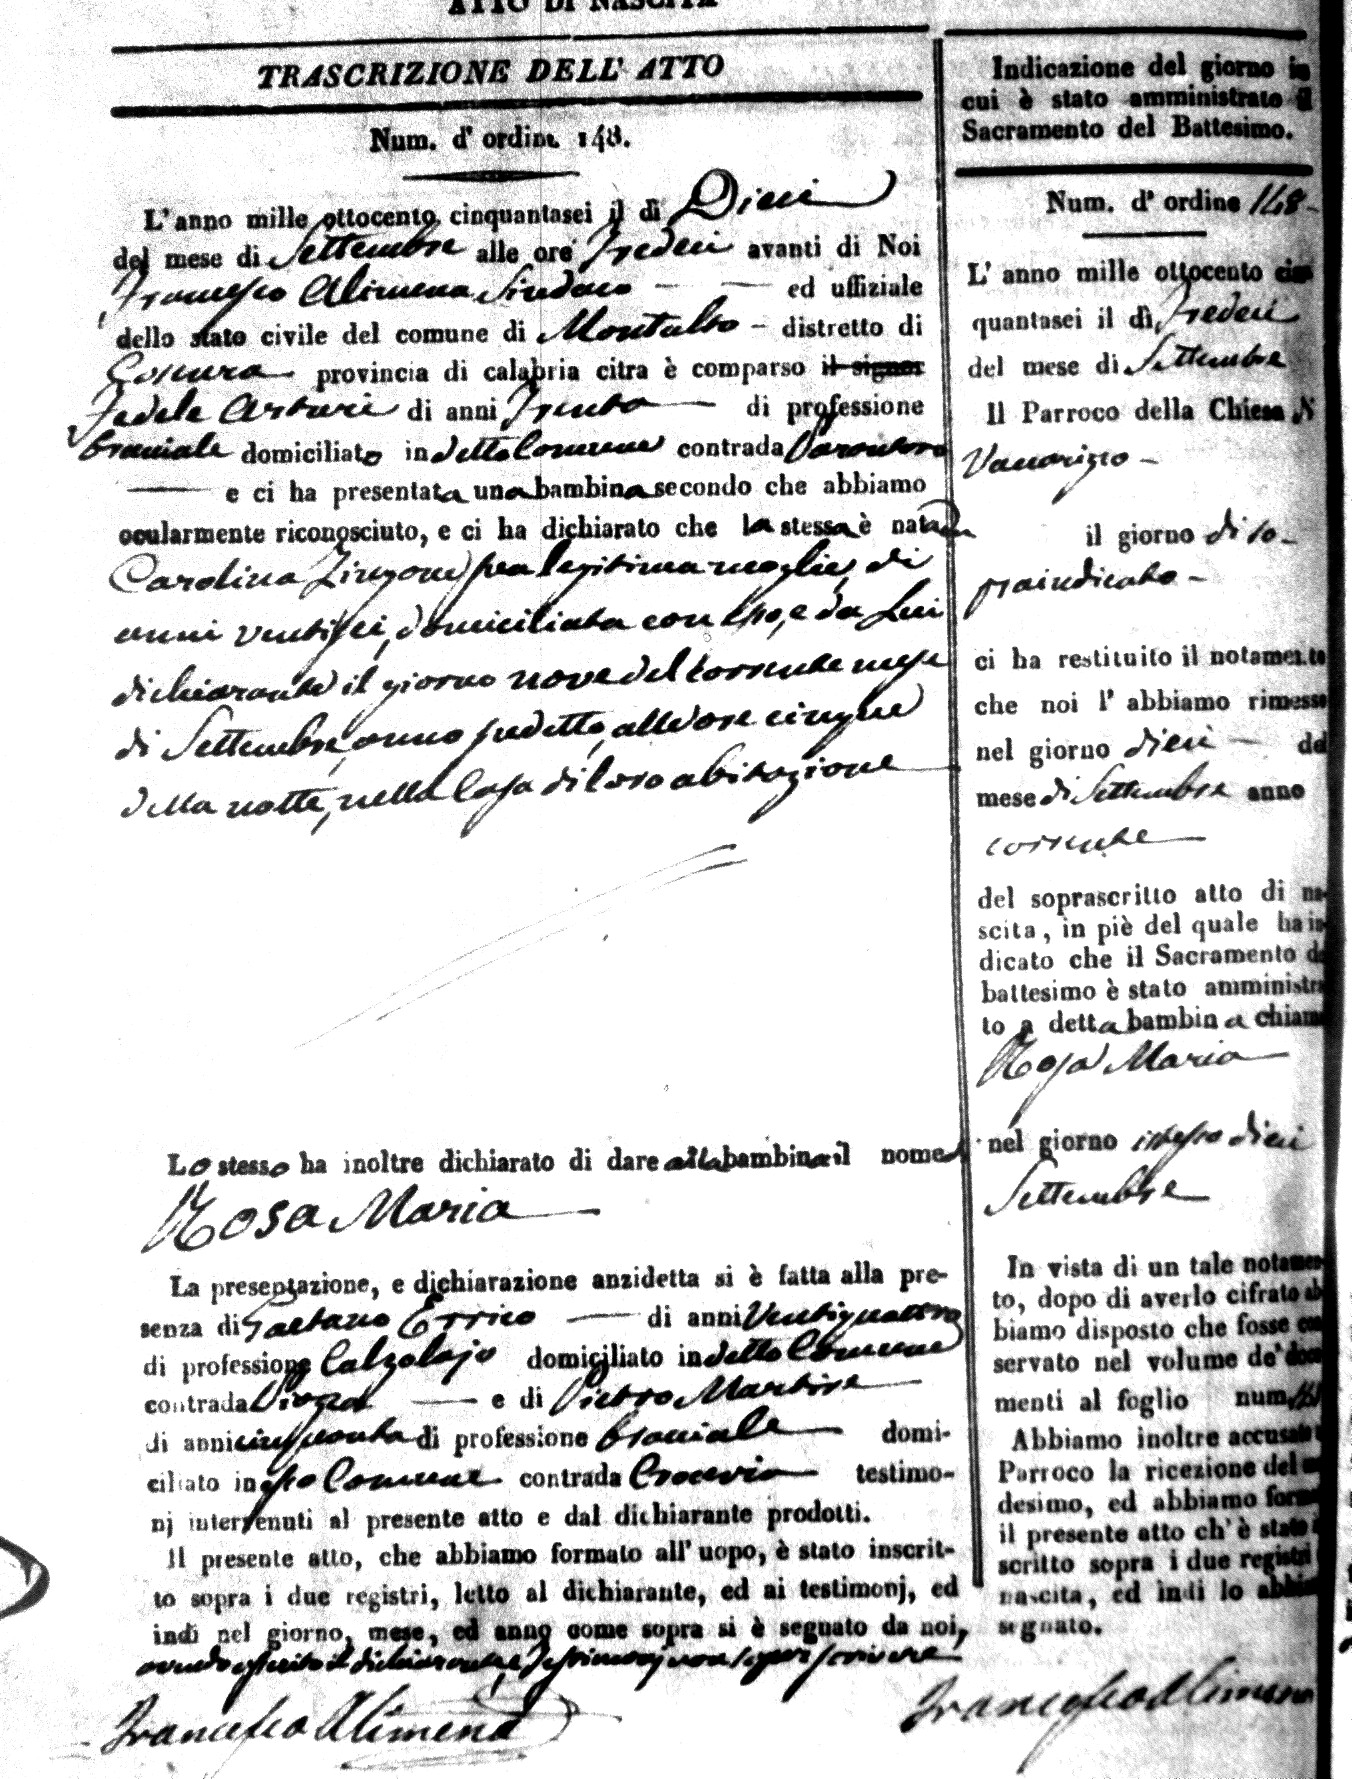 ATTO DI NASCITA
TRASCRIZIONE DELL' ATTO
Num. d' ordine 148.
L' anno mille ottocento cinquantasei il dì Dieci
del mese di Settembre alle ore Tredeci avanti di Noi
Francesco Alimena Sindaco ed uffiziale
dello stato civile del comune di Montalto - distretto di
Cosenza provincia di calabria citra è comparso il signor
Fedele Arturi di anni Trenta di professione
bracciale domiciliato in detto Comune contrada
e ci ha presentata una bambina secondo che abbiamo
ocularmente riconosciuto, e ci ha dichiarato che la stessa è nata da
Carolina Zingone sua legitima moglie, di
anni ventisei, domiciliata con esso, e da Lui
dichiarante il giorno nove del corrente mese
di Settembre, anno sudetto, alle ore cinque
della notte, nella Casa di loro abitazione
Lo stesso ha inoltre dichiarato di dare alla bambina il nome di
Rosa Maria
La presentazione, e dichiarazione anzidetta si è fatta alla pre-
senza di Gaetano Errico di anni Ventiquattro
di professione Calzolajo domiciliato in detto Comune
contrada Piazza e di Pietro Martire
di anni cinquanta di professione bracciale domi-
ciliato in esso Comune contrada Crocevia testimo-
nj intervenuti al presente atto e dal dichiarante prodotti.
Il presente atto, che abbiamo formato all' uopo, è stato inscrit-
to sopra i due registri, letto al dichiarante, ed ai testimonj, ed
indi nel giorno, mese, ed anno come sopra si è segnato da noi,
avendo asserito il dichiarante, e Testimonj non saper scrivere
Francesco Alimena
Indicazione del giorno in
cui è stato amministrato il
Sacramento del Battesimo.
Num. d' ordine 148-
L' anno mille ottocento cin
quantasei il dì Tredeci
del mese di Settembre
Il Parroco della Chiesa
Vaccarizzo -
il giorno di so-
praindicato -
ci ha restituito il notamento
che noi l' abbiamo rimesso
nel giorno dieci del
mese di Settembre anno
corrente
del soprascritto atto di na-
scita, in piè del quale ha in-
dicato che il Sacramento de
battesimo è stato amministra
to a detta bambina chiam
Rosa Maria
nel giorno istesso dieci
Settembre
In vista di un tale notamen-
to, dopo di averlo cifrato ab
biamo disposto che fosse con
servato nel volume de' docu
menti al foglio num.
Abbiamo inoltre accusato
Parroco la ricezione del
desimo, ed abbiamo forma
il presente atto ch' è stato i
scritto sopra i due registri
nascita, ed indi lo abbia
segnato.
Francesco Alimena